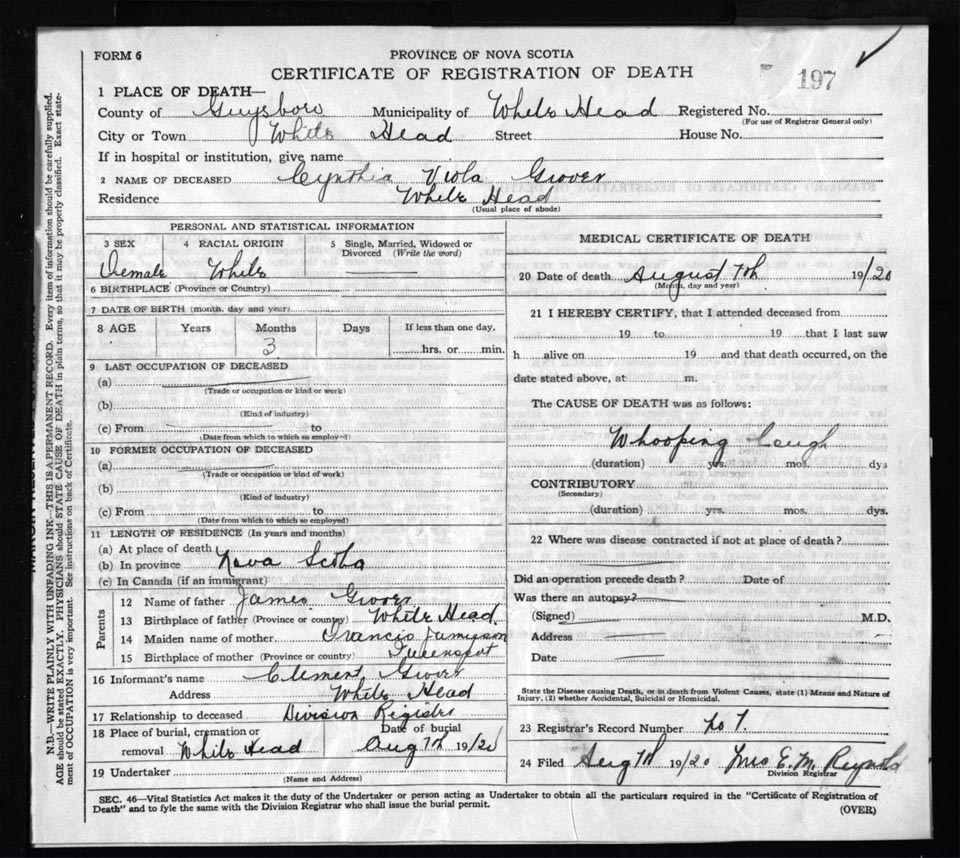 FORM 6
PROVINCE OF NOVA SCOTIA
CERTIFICATE OF REGISTRATION OF DEATH
197
1 PLACE OF DEATH—
County of Guysboro Municipality of White Head Registered No.
(For use of Registrar General only)
City or Town White Head Street House No.
If in hospital or institution, give name
2 NAME OF DECEASED Cynthia Viola Grover
Residence White Head
(Usual place of abode)
PERSONAL AND STATISTICAL INFORMATION
3 SEX 4 RACIAL ORIGIN 5 Single, Married, Widowed or Divorced (Write the word)
Female White
6 BIRTHPLACE (Province or Country)
7 DATE OF BIRTH (month, day and year)
8 AGE Years Months Days If less than one day,
3 hrs. or min.
9 LAST OCCUPATION OF DECEASED
(a)
(Trade or occupation or kind or work)
(b)
(Kind of industry)
(c) From to
(Date from which to which so employed)
10 FORMER OCCUPATION OF DECEASED
(a)
(Trade or occupation or kind of work)
(b)
(Kind of industry)
(c) From to
(Date from which to which so employed)
11 LENGTH OF RESIDENCE (In years and months)
(a) At place of death
(b) In province Nova Scotia
(c) In Canada (if an immigrant)
Parents
12 Name of father James Grover
13 Birthplace of father (Province or country) White Head
14 Maiden name of mother Francis Jamieson
15 Birthplace of mother (Province or country)
16 Informant's name Clement Grover
Address White Head
17 Relationship to deceased Division Register
18 Place of burial, cremation or removal White Head Date of burial Aug 7th 19/20
19 Undertaker
(Name and Address)
MEDICAL CERTIFICATE OF DEATH
20 Date of death August 7th 19/20
(Month, day and year)
21 I HEREBY CERTIFY, that I attended deceased from
19 to 19 that I last saw
h alive on 19 and that death occurred, on the
date stated above, at m.
The CAUSE OF DEATH was as follows:
Whooping Cough
(duration) yrs. mos. dys
CONTRIBUTORY
(Secondary)
(duration) yrs. mos. dys.
22 Where was disease contracted if not at place of death?
Did an operation precede death? Date of
Was there an autopsy?
(Signed) M.D.
Address
Date
State the Disease causing Death, or in death from Violent Causes, state (1) Means and Nature of
Injury, (2) whether Accidental, Suicidal or Homicidal.
23 Registrar's Record Number No 7.
24 Filed Aug 7th 19/20 Mrs E. M. Reynold
Division Registrar
SEC. 46—Vital Statistics Act makes it the duty of the Undertaker or person acting as Undertaker to obtain all the particulars required in the "Certificate of Registration of
Death" and to fyle the same with the Division Registrar who shall issue the burial permit.
(OVER)
N.B.—WRITE PLAINLY WITH UNFADING INK—THIS IS A PERMANENT RECORD. Every item of information should be carefully supplied.
AGE should be stated EXACTLY. PHYSICIANS should STATE CAUSE OF DEATH in plain terms, so that it may be properly classified. Exact statement of OCCUPATION is very important. See instructions on back of Certificate.